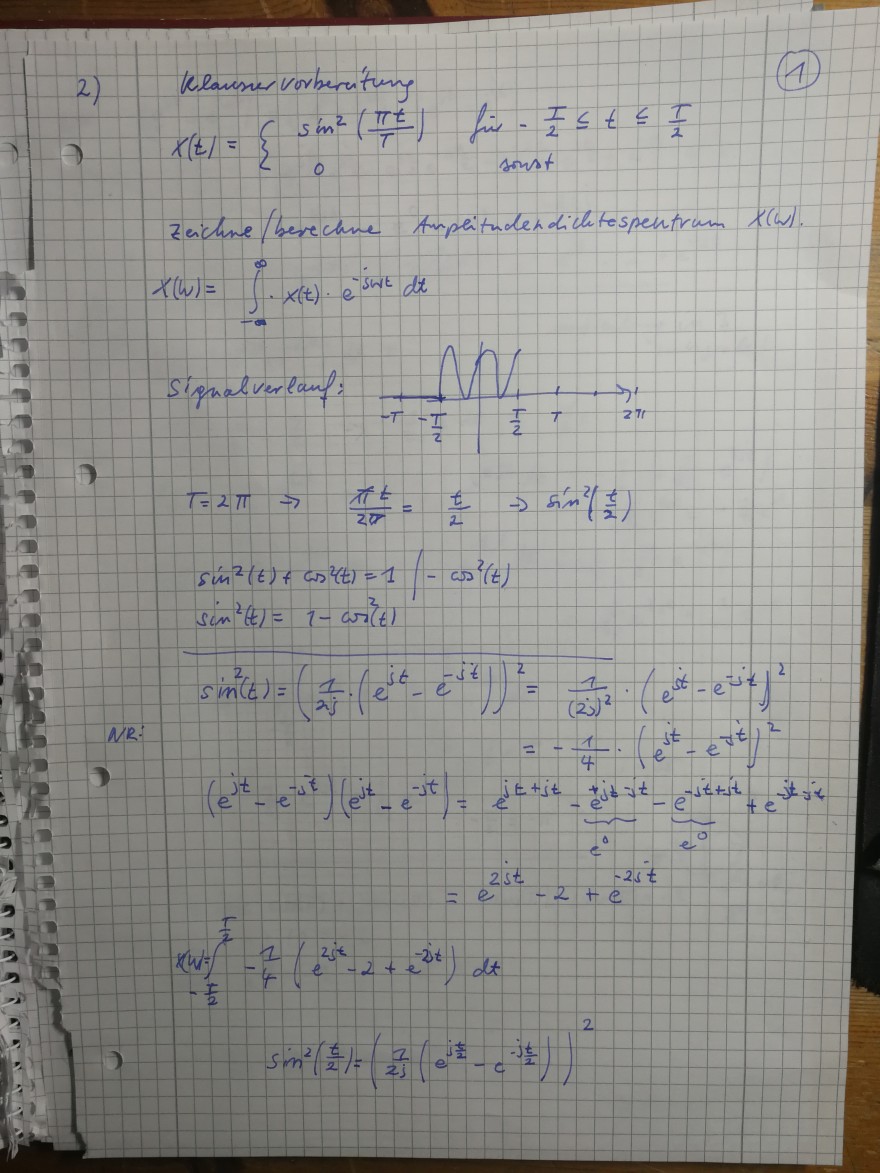 ①
2) Klausurvorbereitung
x(t) = { sin² (πt/T) für - T/2 ≤ t ≤ T/2
0 sonst
Zeichne/berechne Amplitudendichtespektrum X(ω).
X(ω) = ∫_{-∞}^{∞} · x(t) · e^{-jωt} dt
Signalverlauf:
-T -T/2 T/2 T 2π
T = 2π → πt/2π = t/2 → sin²(t/2)
sin²(t) + cos²(t) = 1 | - cos²(t)
sin²(t) = 1 - cos²(t)
sin²(t) = (1/2j · (e^{jt} - e^{-jt}))² = 1/(2j)² · (e^{jt} - e^{-jt})²
NR: = - 1/4 · (e^{jt} - e^{-jt})²
(e^{jt} - e^{-jt})(e^{jt} - e^{-jt}) = e^{jt+jt} - e^{+jt-jt} - e^{-jt+jt} + e^{-jt-jt}
e⁰ e⁰
= e^{2jt} - 2 + e^{-2jt}
X(ω) = ∫_{-T/2}^{T/2} - 1/4 (e^{2jt} - 2 + e^{-2jt}) dt
sin²(t/2) = (1/2j (e^{jt/2} - e^{-jt/2}))²